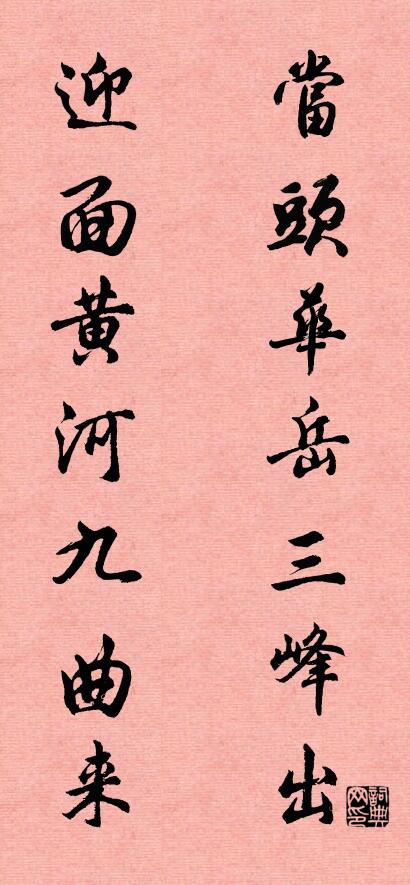 當頭華岳三峰出
迎面黄河九曲来
詞典网印